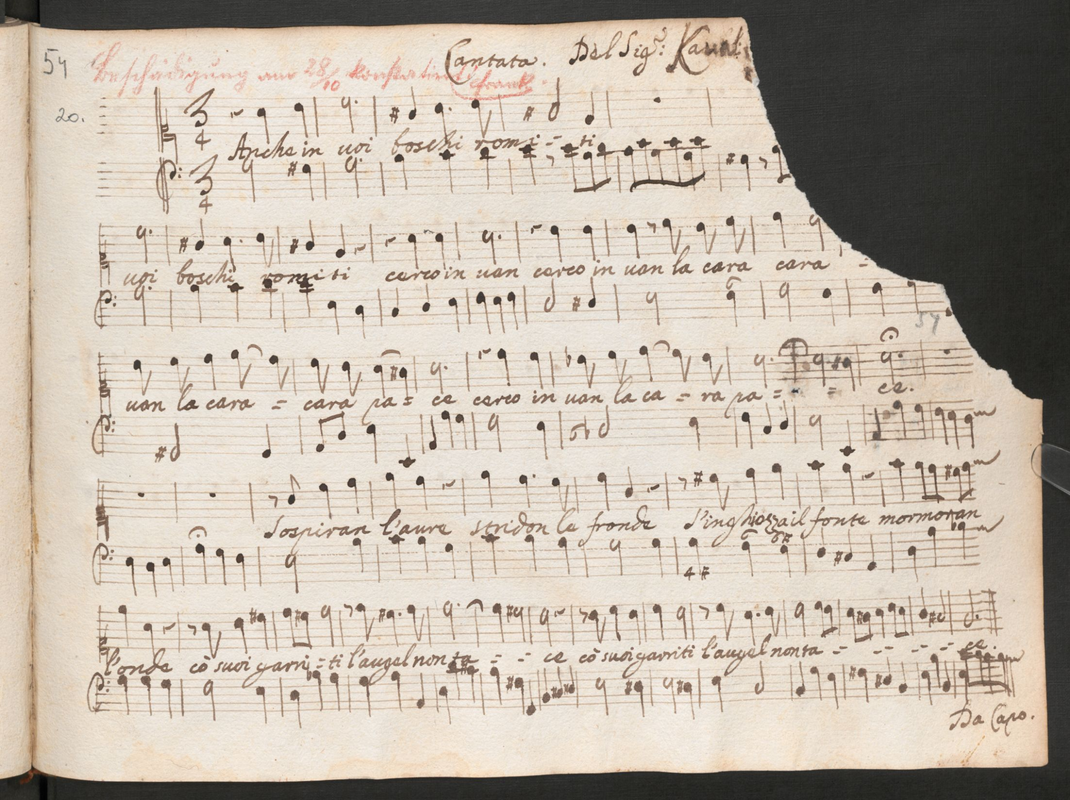 54
Cantata. Del Sig.r
Beschädigung am 28/10 konstatiert Frank
20.
3 4
Anche in voi boschi romi - - ti
3 4
voi boschi romiti cerco in van cerco in van la cara cara -
54
van la cara - cara pa - ce cerco in van la ca - ra pa - - - ce.
6b
Sospiran l'aure stridon le fronde Singhiozza il fonte mormoran
4 #
l'onde cò suoi garri - ti l'augel non ta - - - ce cò suoi garriti l'augel non ta - - - - - - ce.
Da Capo.